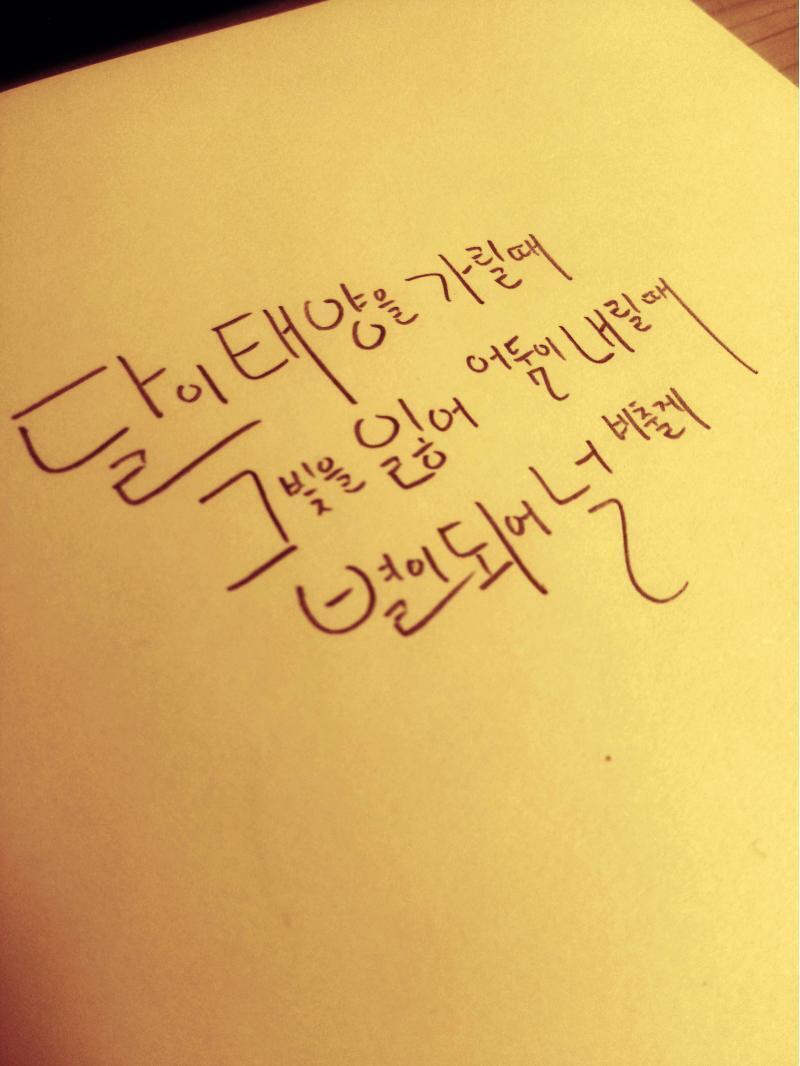 달이 태양을 가릴때
그 빛을 잃어 어둠이 내릴때
별이 되어 널 비출게